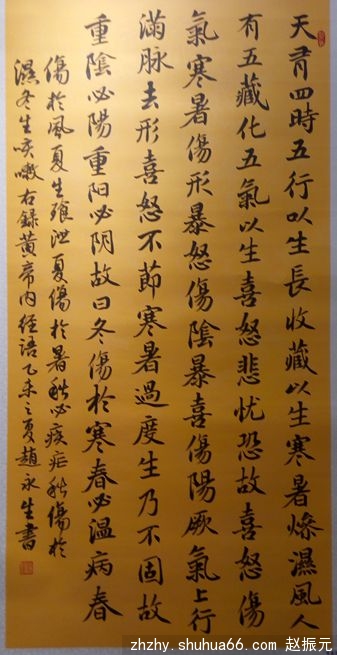 天有四時五行以生長收藏以生寒暑燥濕風人
有五藏化五氣以生喜怒悲忧恐故喜怒傷
氣寒暑傷形暴怒傷陰暴喜傷陽厥氣上行
滿脉去形喜怒不節寒暑過度生乃不固故
重陰必陽重阳必阴故曰冬傷於寒春必温病春
傷於風夏生飧泄夏傷於暑秋必痎疟秋傷於
濕冬生咳嗽右録黄帝内経語乙未之夏趙永生書
zhzhy.shuhua66.com 赵振元